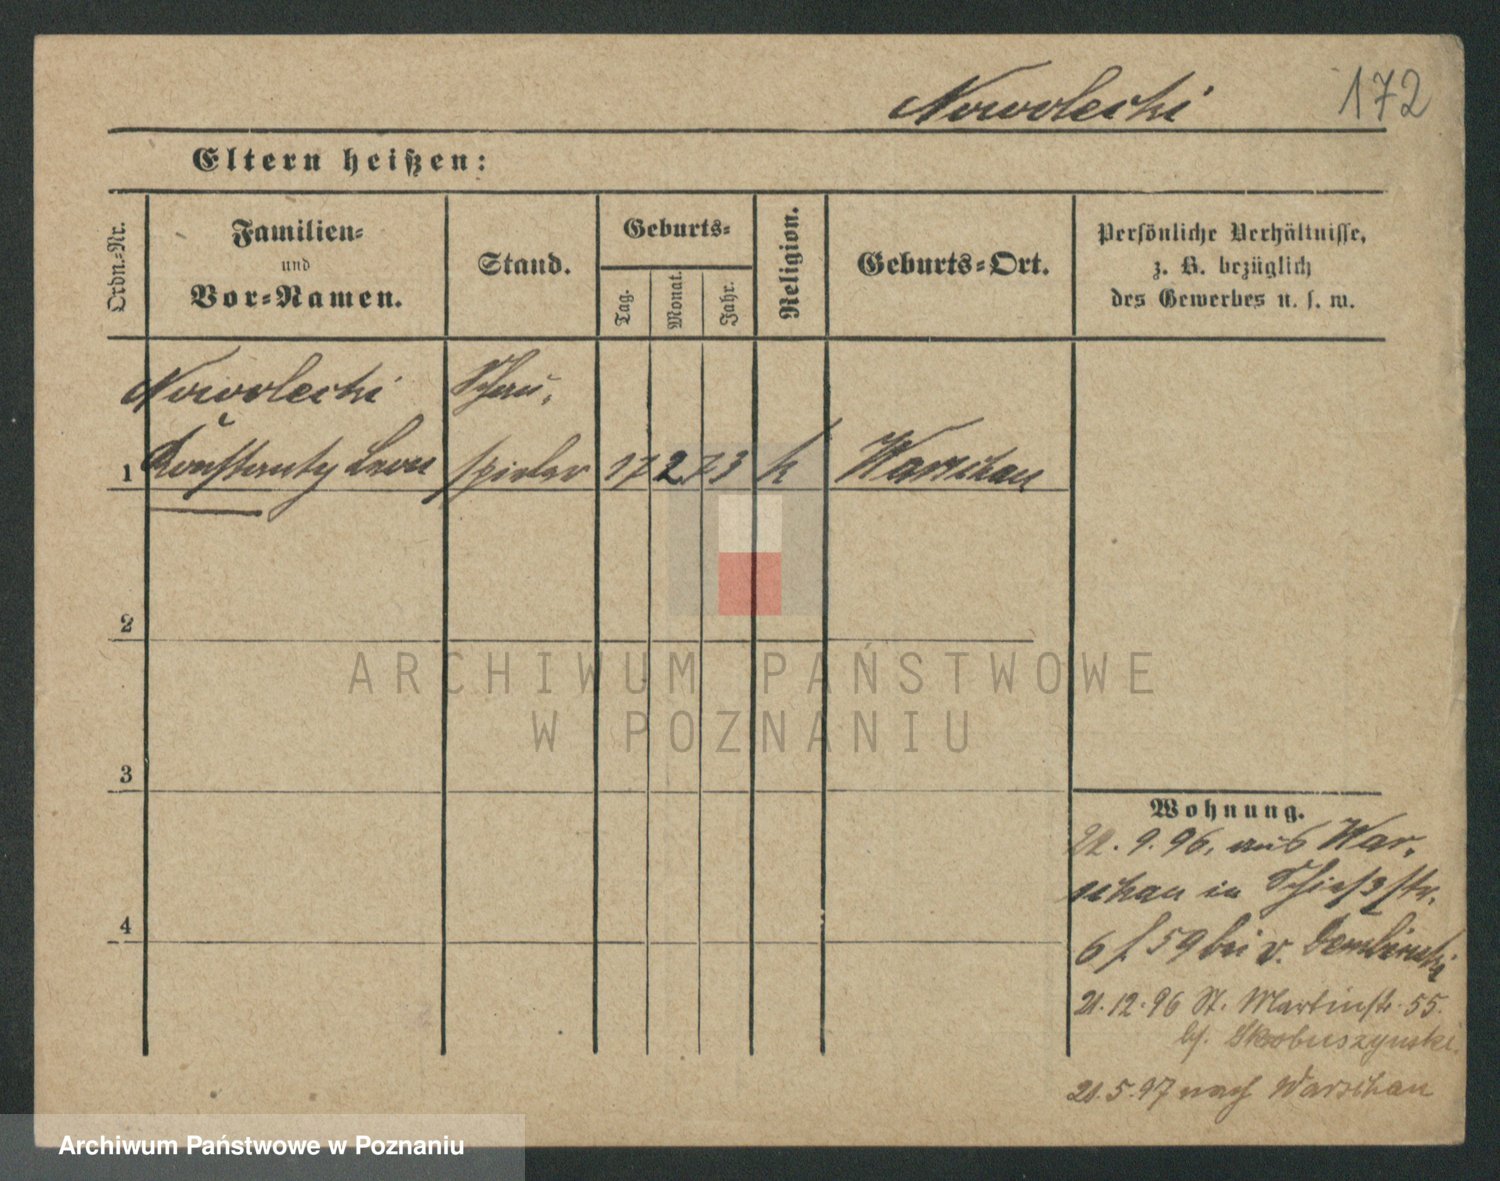 Nowolecki 172
Eltern heißen:
Ordn.-Nr.
Familien-
und
Vor-Namen.
Stand.
Geburts-
Tag.
Monat.
Jahr.
Religion.
Geburts-Ort.
Persönliche Verhältnisse,
z. B. bezüglich
des Gewerbes u. s. w.
Nowolecki Schau,
1 Konstanty Leon spieler 17 2 73 k Warschau
2
3
4
Wohnung.
22. 9. 96. aus War,
schau in Schießstr.
6 f 59 bei v. Dembinski
21.12.96 St. Martinstr. 55.
bj. Skobuszynski
21.5.97 nach Warschau
ARCHIWUM PAŃSTWOWE
W POZNANIU
Archiwum Państwowe w Poznaniu